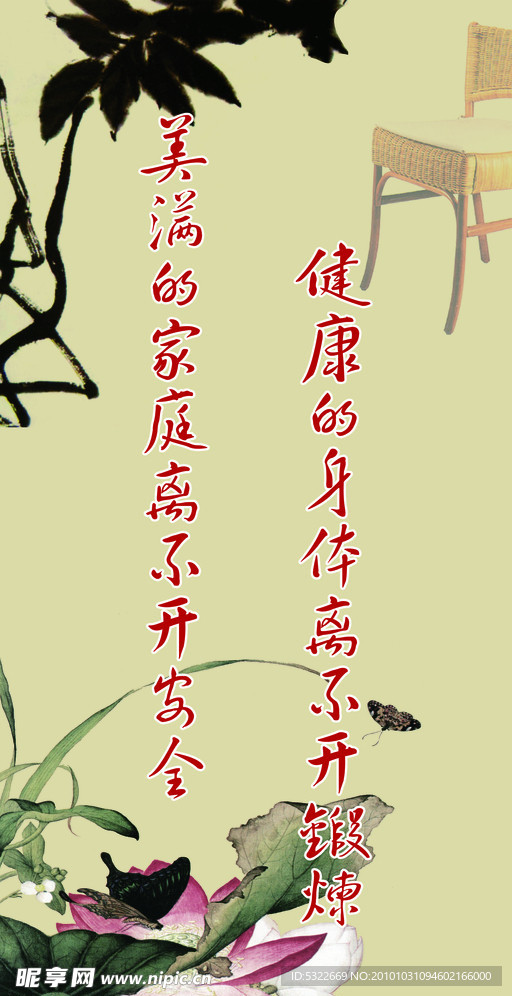 健康的身体离不开鍛煉
美满的家庭离不开安全
昵享网 www.nipic.cn
ID:5322669 NO:20101031094602166000